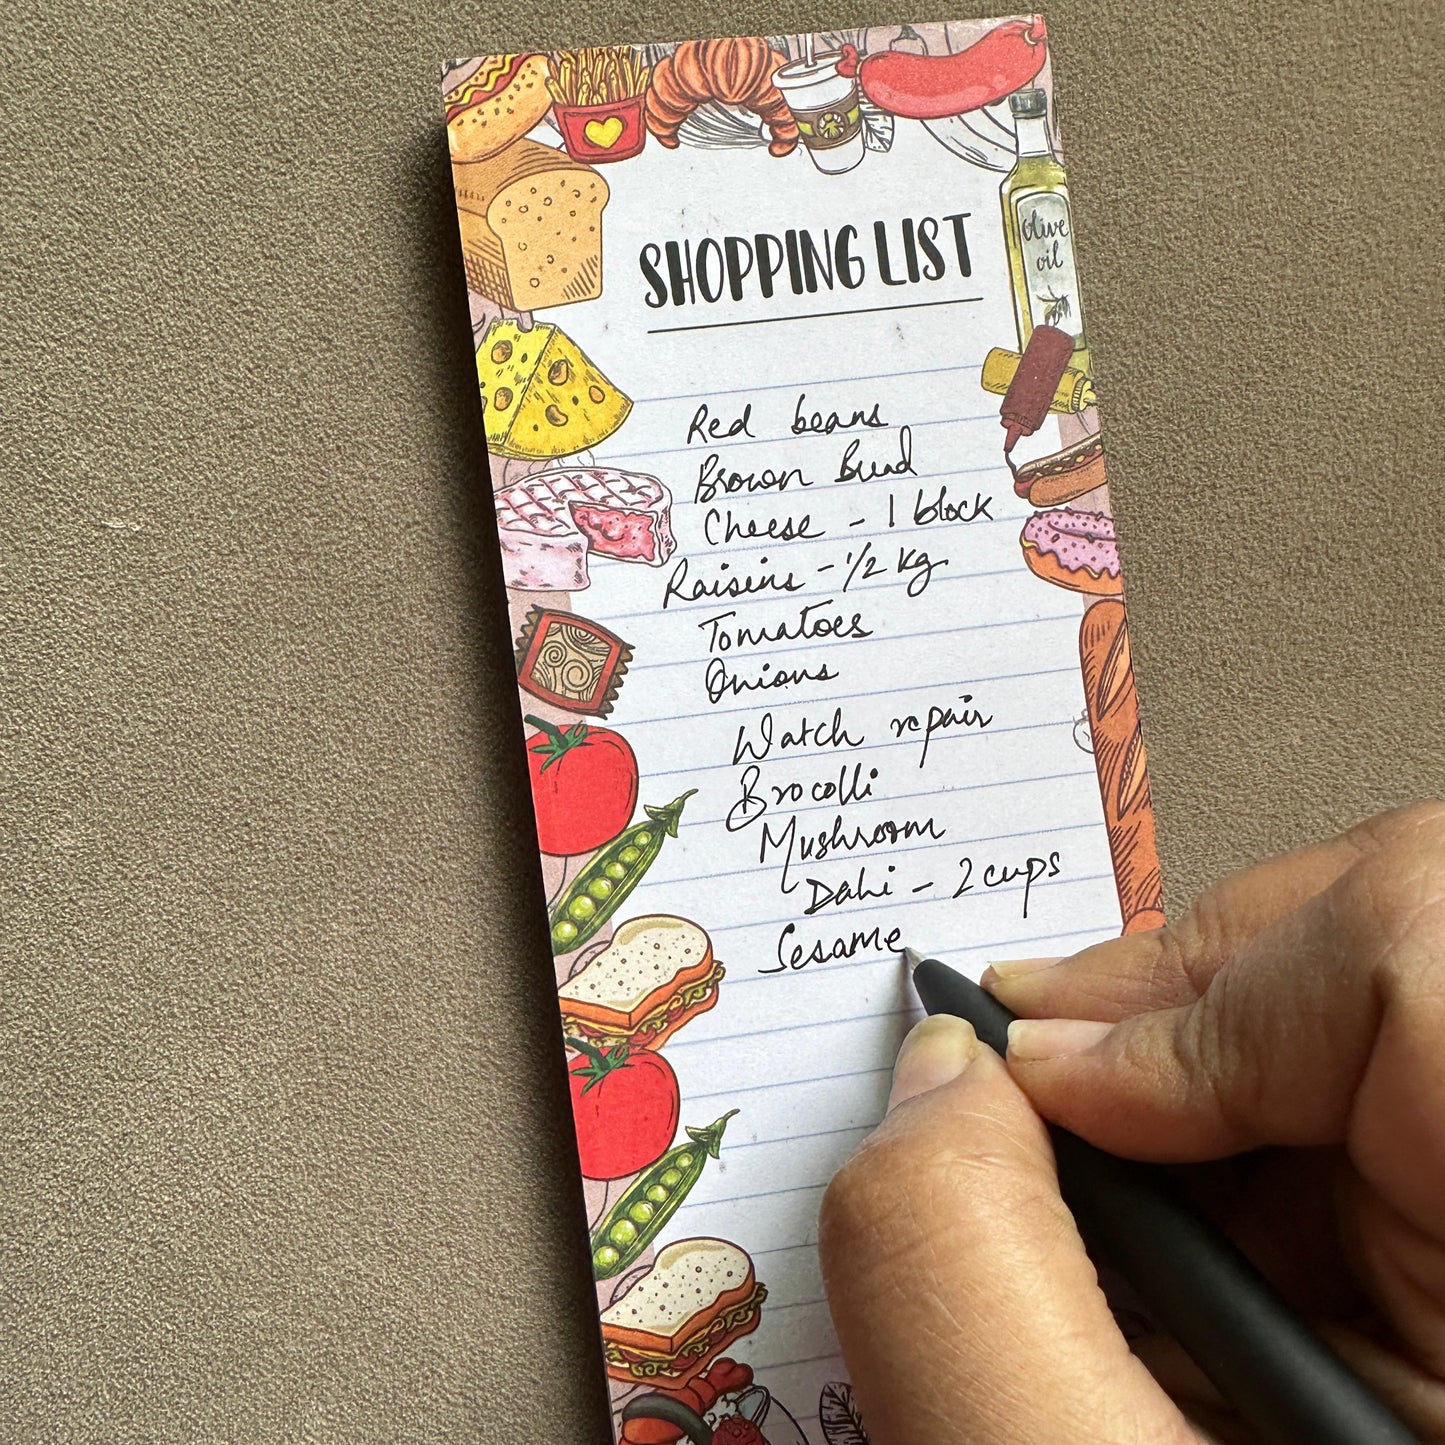 SHOPPING LIST
olive
oil
Red beans
Brown Bread
Cheese - 1 block
Raisins - 1/2 kg
Tomatoes
Onions
Watch repair
Brocolli
Mushroom
Dahi - 2 cups
Sesame